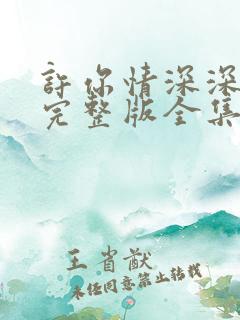 許你情深深
完整版全集
王省猷
未经同意禁止转载